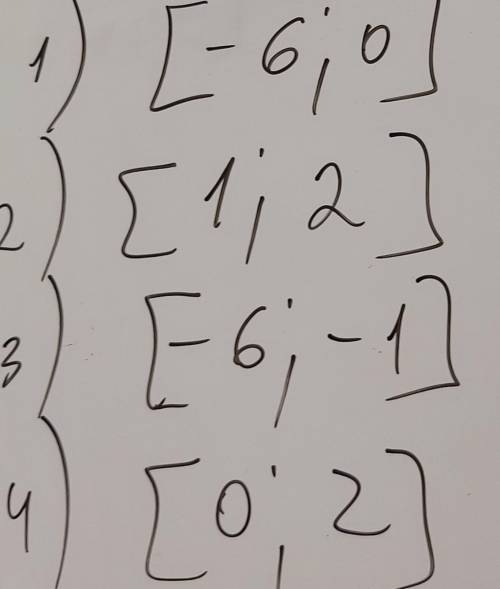 1) [-6; 0]
2) [1; 2]
3) [-6; -1]
4) [0; 2]